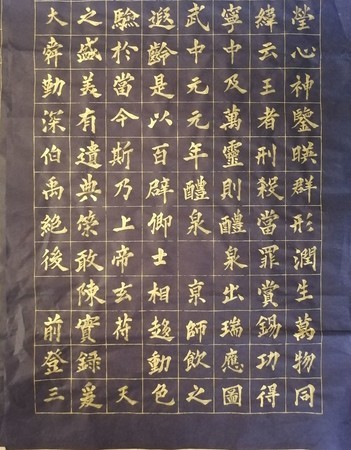 瑩心神鑒暎群形潤生萬物同
緯云王者刑殺當罪賞錫功得
寧中及萬靈則醴泉出瑞應圖
武中元元年醴泉 京師飲之
遐齡是以百辟卿士相趍動色
驗於當今斯乃上帝玄苻 天
之盛美有遺典榮敢陳實錄爰
大舜勤深伯禹絶後 前登三